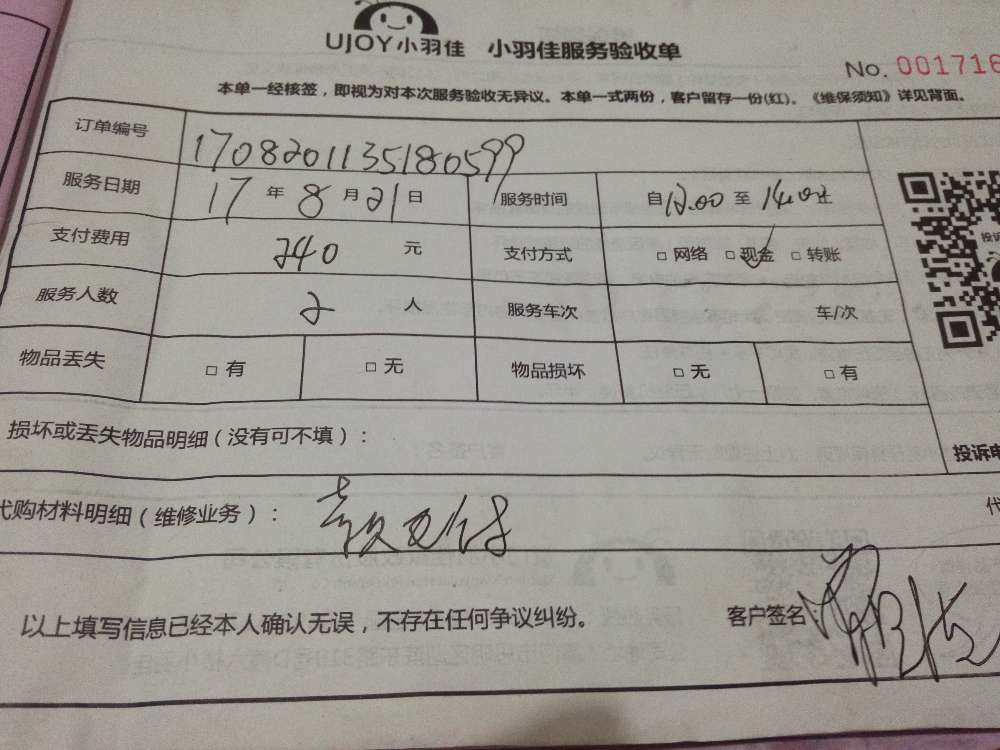 UJOY小羽佳 小羽佳服务验收单
No. 001716
本单一经核签，即视为对本次服务验收无异议。本单一式两份，客户留存一份(红)。《维保须知》详见背面。
订单编号 1708201135180599
服务日期 17 年 8 月 21 日 服务时间 自 12.00 至 14.00止
支付费用 240 元 支付方式 □ 网络 □ 现金 □ 转账
服务人数 2 人 服务车次 车/次
物品丢失 □ 有 □ 无 物品损坏 □ 无 □ 有
损坏或丢失物品明细（没有可不填）：
投诉电
代购材料明细（维修业务）：
代
以上填写信息已经本人确认无误，不存在任何争议纠纷。 客户签名：